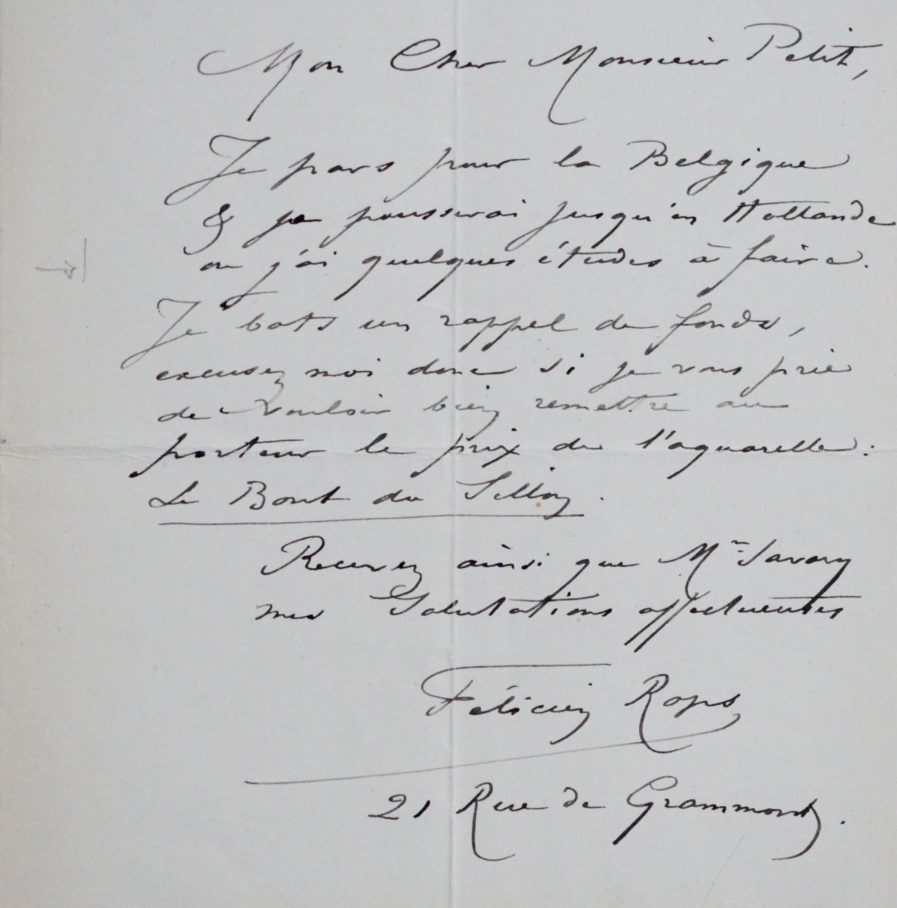 Mon Cher Monsieur Petit,
Je pars pour la Belgique
& je pousserai jusqu'en Hollande
ou j'ai quelques études à faire.
Je bats un rappel de fonds,
excusez moi donc si je vous prie
de vouloir bien remettre au
porteur le prix de l'aquarelle :
Le Bout du Sillon.
Recevez ainsi que Mr Savary
mes Salutations affectueuses
Félicien Rops
21 Rue de Grammont.